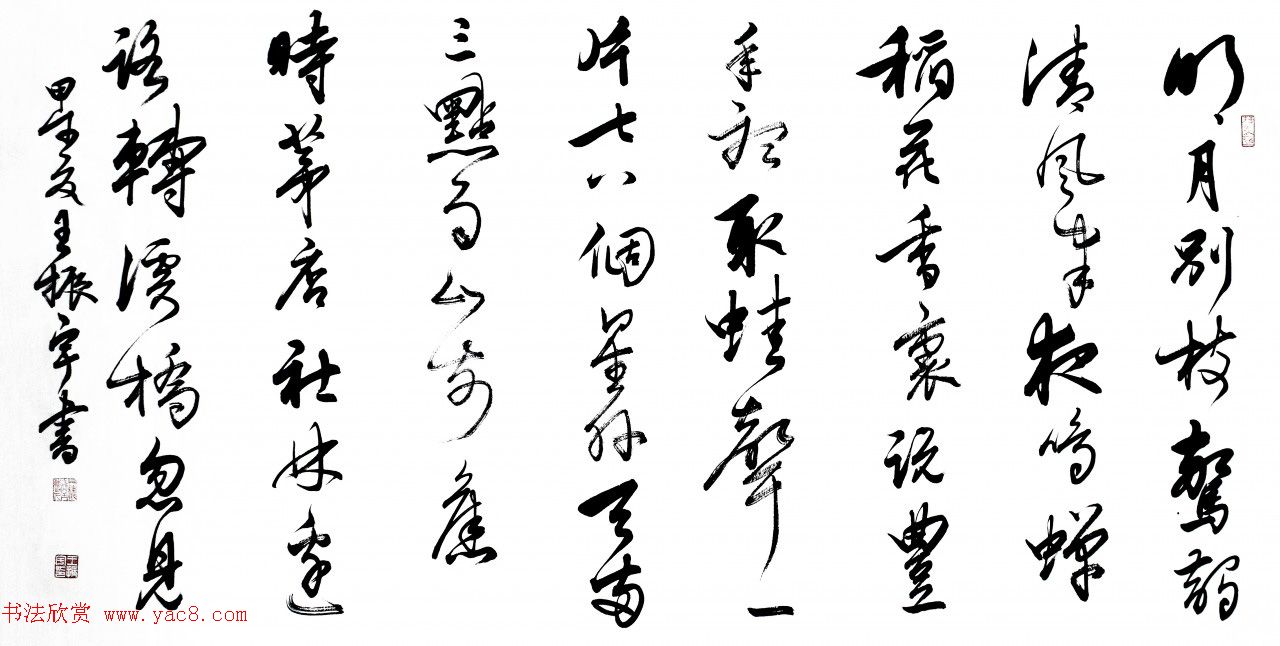 明月別枝驚鵲
清風半夜鳴蟬
稻花香裏説豐
年聽取蛙聲一
片七八個星外天兩
三點雨山前舊
時茅店社林邊
路轉溪橋忽見
甲午夏王振宇書
书法欣赏 www.yac8.com